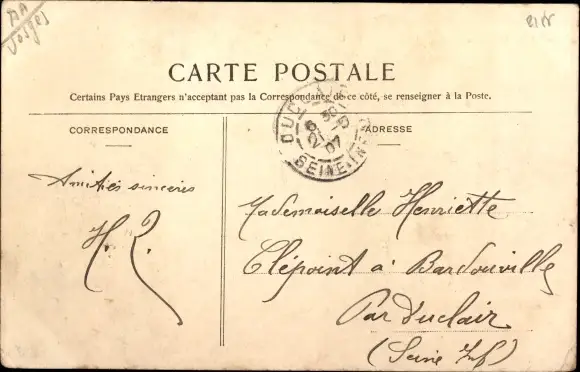 Vosges
CARTE POSTALE
Certains Pays Etrangers n'acceptant pas la Correspondance de ce côté, se renseigner à la Poste.
CORRESPONDANCE
ADRESSE
DUCLAIR
SEINE INFRE
07
Amitiés sincères
Mademoiselle Henriette
Clépoint à Bardouville
Par Duclair
(Seine Inf)